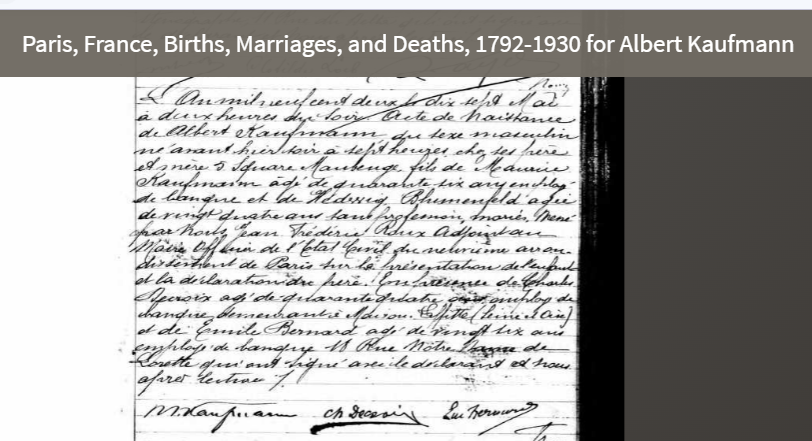 Paris, France, Births, Marriages, and Deaths, 1792-1930 for Albert Kaufmann
L'An mil neuf cent deux le dix sept Mai
à deux heures du soir Acte de Naissance
de Albert Kaufmann du sexe masculin
né avant hier soir à sept heures chez ses père
et mère 5 Square Maubeuge, fils de Maurice
Kaufmann âgé de quarante six ans employé
de banque et de Hedwig Blumenfeld âgée
de vingt quatre ans sans profession, mariés. Dressé
par Nous Jean Frédéric Roux Adjoint au
Maire Officier de l'Etat Civil du neuvième arron-
dissement de Paris sur la présentation de l'enfant
et la déclaration du père. En présence de Charles
Decroix âgé de quarante quatre ans employé de
banque demeurant à Maison Laffitte (Seine & Oise)
et de Emile Bernard âgé de vingt six ans
employé de banque 18 Rue Notre Dame de
Lorette qui ont signé avec le déclarant et nous
après lecture /.
M. Kaufmann Ch Decroix